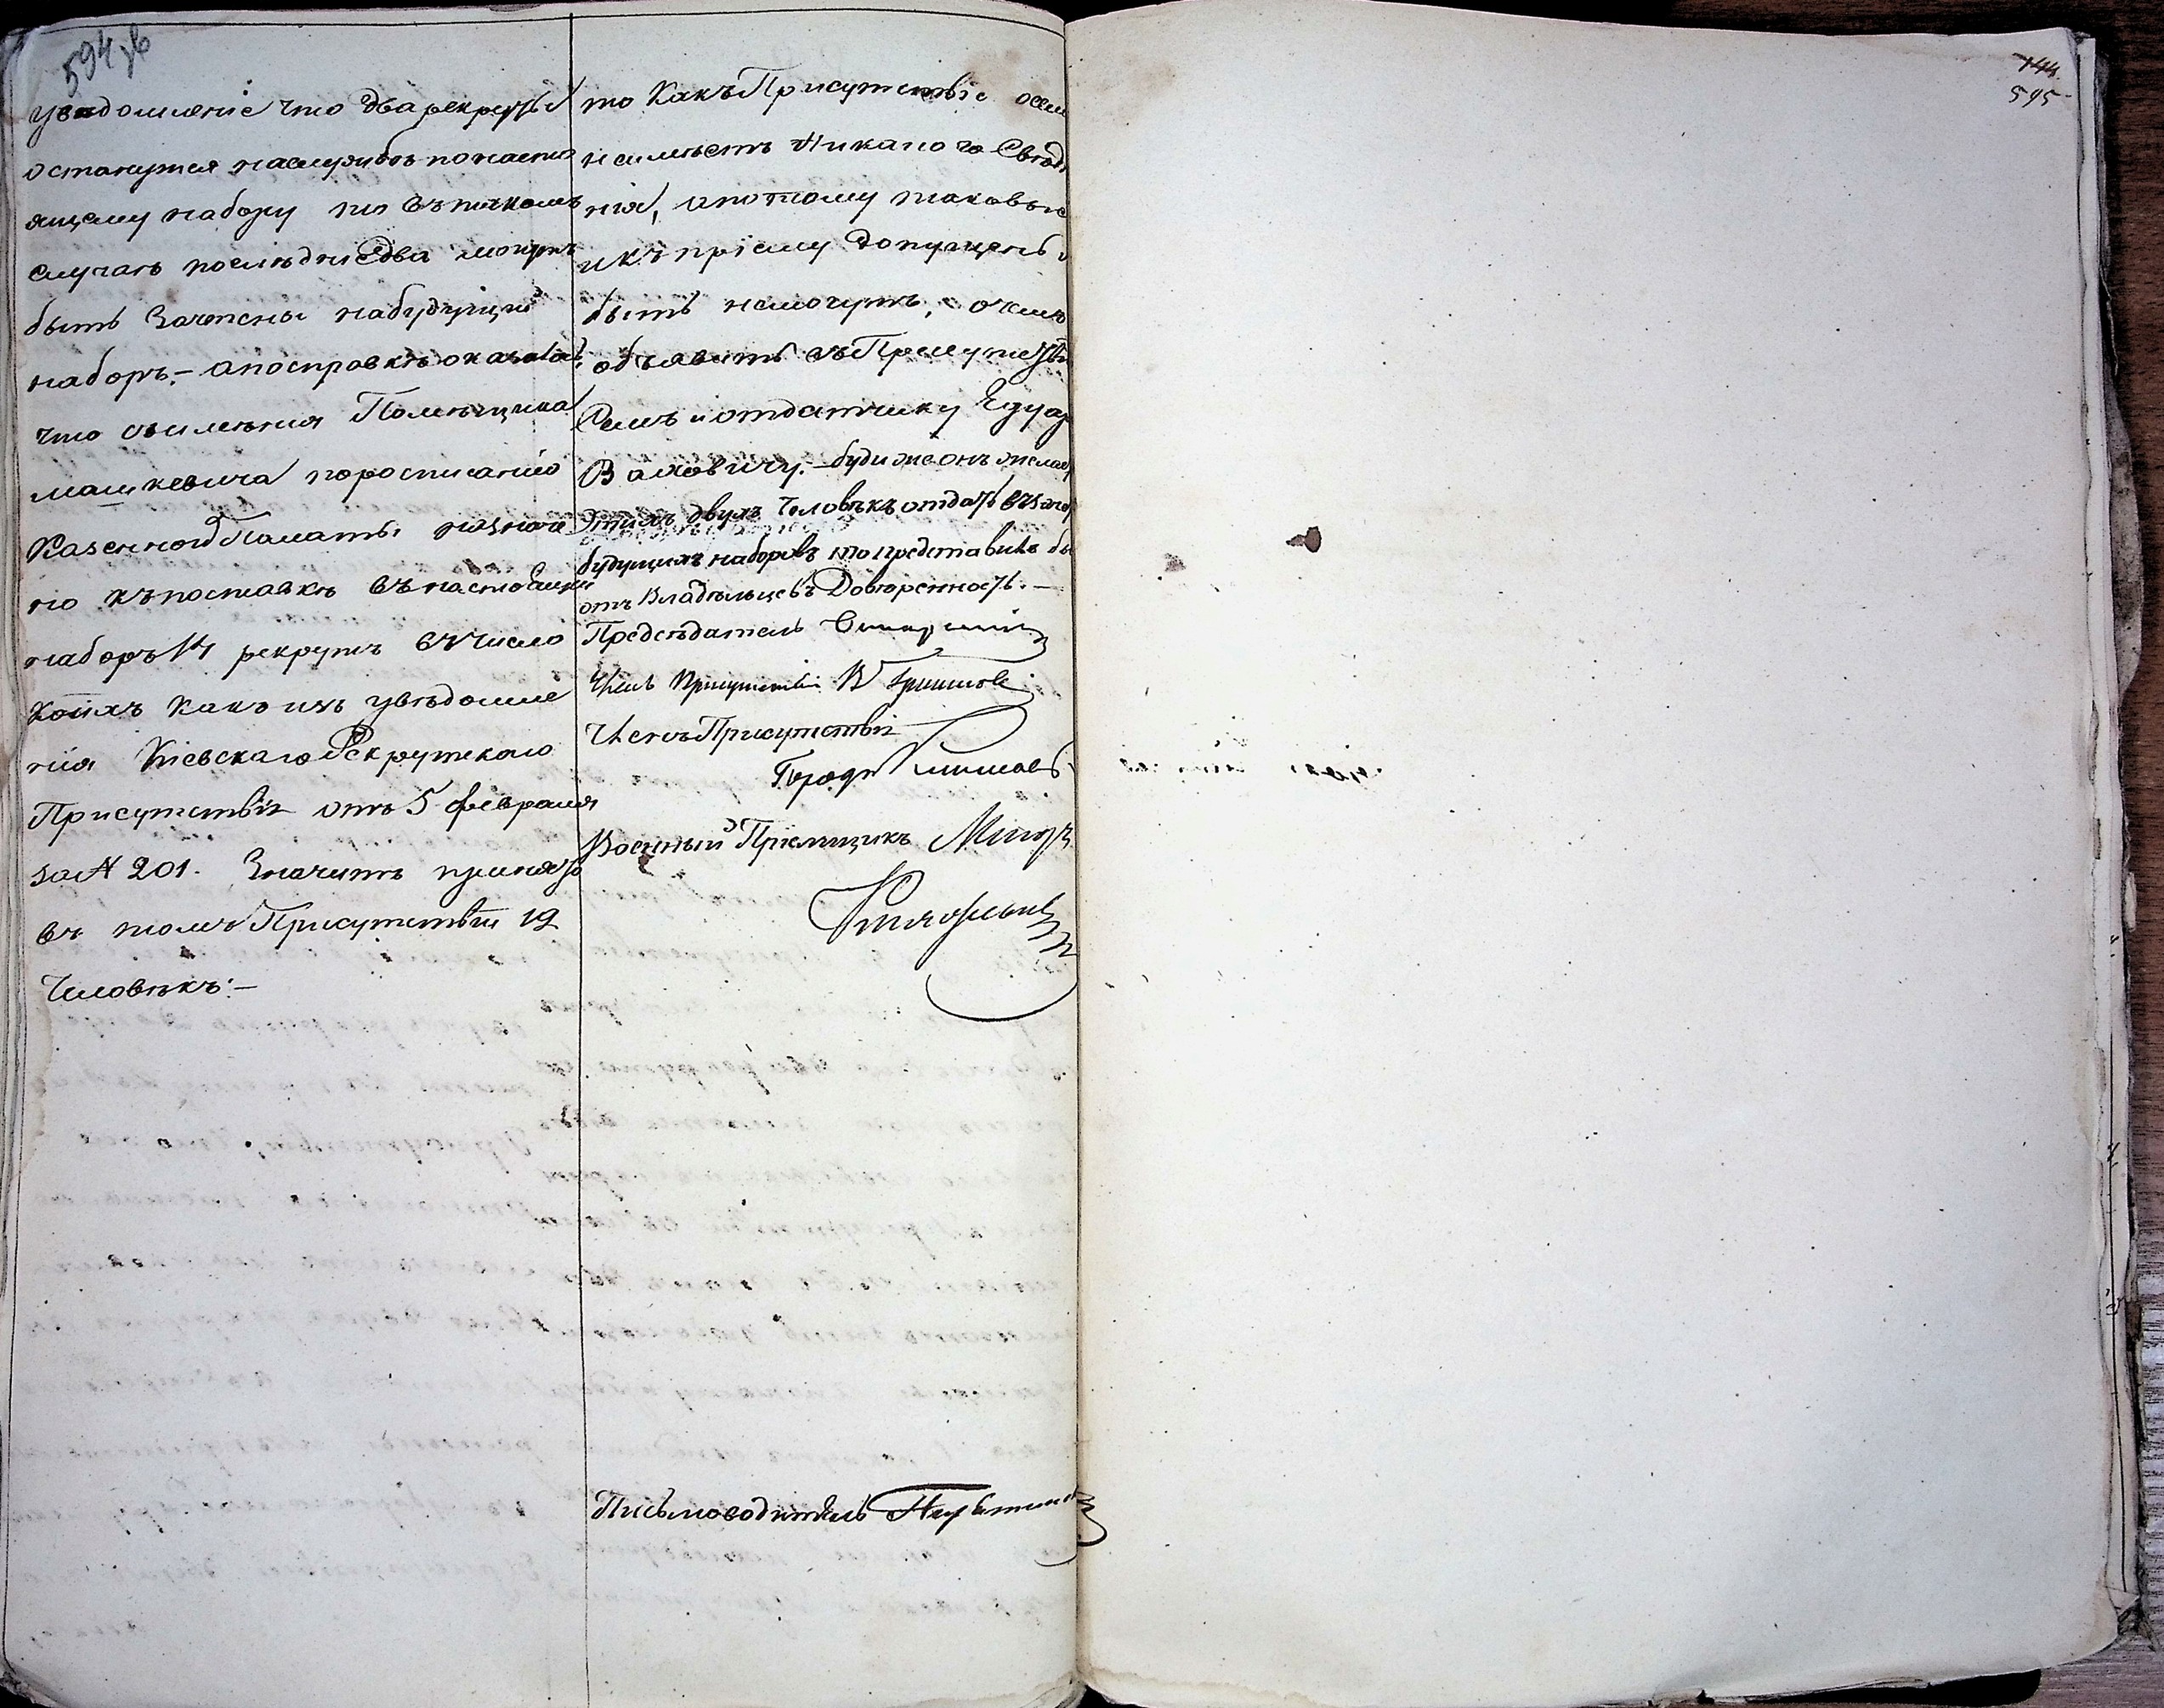 594 зв
увѣдомленіе что два рекруты
останутся наслужбѣ понасто
ящему набору то въ такомъ
случаѣ послѣдніе два могутъ
быть Зачтены на будущій
наборъ. – апосправкѣ оказалось
что съ имѣнія Помѣщика
Машкевича поросписанію
Казенной Палаты назначе
но къ поставкѣ въ настоящій
наборъ 14 рекрутъ въ число
коихъ какъ изъ увѣдомле
нія Кіевскаго Рекрутскаго
Присутствія отъ 5 февраля
за № 201. Значитъ принято
въ томъ Присутствіи 12
Человѣкъ: –
то Какъ Присутствіе осемъ
неимѣетъ Никакого Свѣдѣ
нія, апотому таковые
и къ пріему допущены
быть немогутъ, очемъ
объявить въ Присутствіи
Семъ и отдатчику Едуар
Ваховичу. – буди же онъ желае
Этихъ двухъ Человѣкъ отдать въ зачетъ
будущихъ наборовъ то представилъ бы
отъ Владѣльцевъ Довѣренность. –
Предсѣдатель
Членъ Присутствія В
Членъ Присутствія
Военный Пріемщикъ Маіоръ
Письмоводитель
144.
595